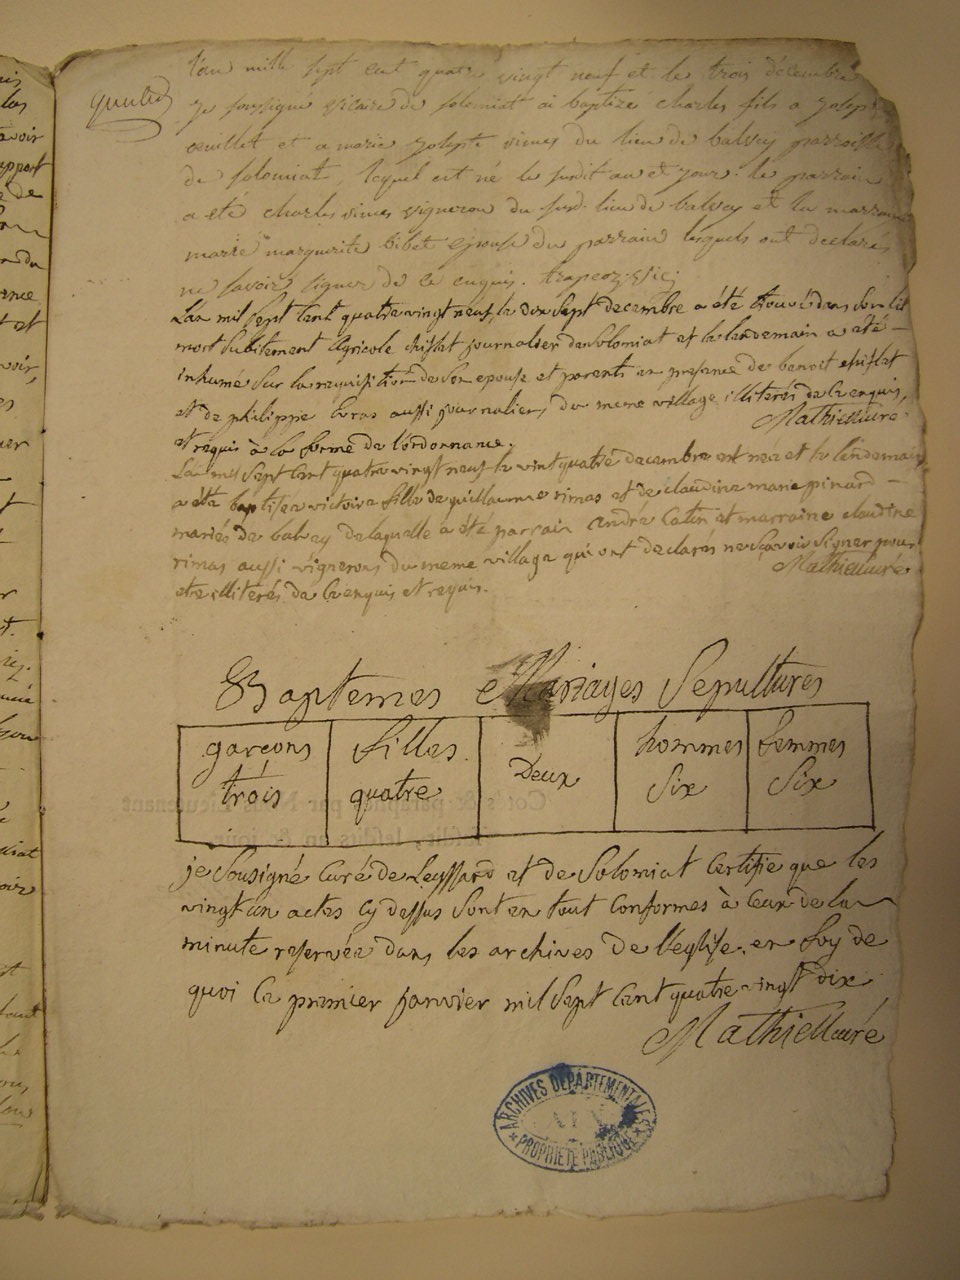 l'an mille sept cent quatre vingt neuf et le trois décembre
je soussigné vicaire de solomiat ai baptizé charles fils a joseph
œuillet et a marie josepte vimes du lieu de balvey parroisse
de solomiat, lequel est né le susdit an et jour. le parrain
a été charles vimes vigneron du susd. lieu de balvey et la marraine
marie marguerite bibet epouse du parrain lesquels ont declarés
ne savoir signer de ce enquis.
L'an mil sept cent quatre vingt neuf, le dix sept decembre a été trouvé dans son lit
mort subitement Agricole chiflet journalier de Solomiat et le lendemain a été
inhumé sur la requisition de son epouse et parents en presence de benoit chiflet
et de philippe Gras aussi journaliers du meme village illiterés de ce enquis,
et requis à la forme de l'ordonnance. Mathieu curé
L'an mil sept cent quatre vingt neuf le vint quatre decembre est née et le lendemain
a été baptisée victoire fille de guillaume rimas et de claudine marie pinard
mariés de balvey de laquelle a été parrain André Catin et marraine claudine
rimas aussi vignerons du meme village qui ont declarés ne sçavoir signer pour
etre illiterés de ce enquis et requis. Mathieu curé
Baptemes Mariages Sepultures
garçons filles hommes femmes
trois quatre Deux Six Six
je Sousigné Curé de Leyssard et de Solomiat Certifie que les
vingt un actes cy dessus Sont en tout Conformes à Ceux de la
minute reservée dans les archives de l'eglise. en foy de
quoi Ce premier janvier mil Sept Cent quatre vingt dix
Mathieu curé
ARCHIVES DÉPARTEMENTALES
AIN
PROPRIÉTÉ PUBLIQUE